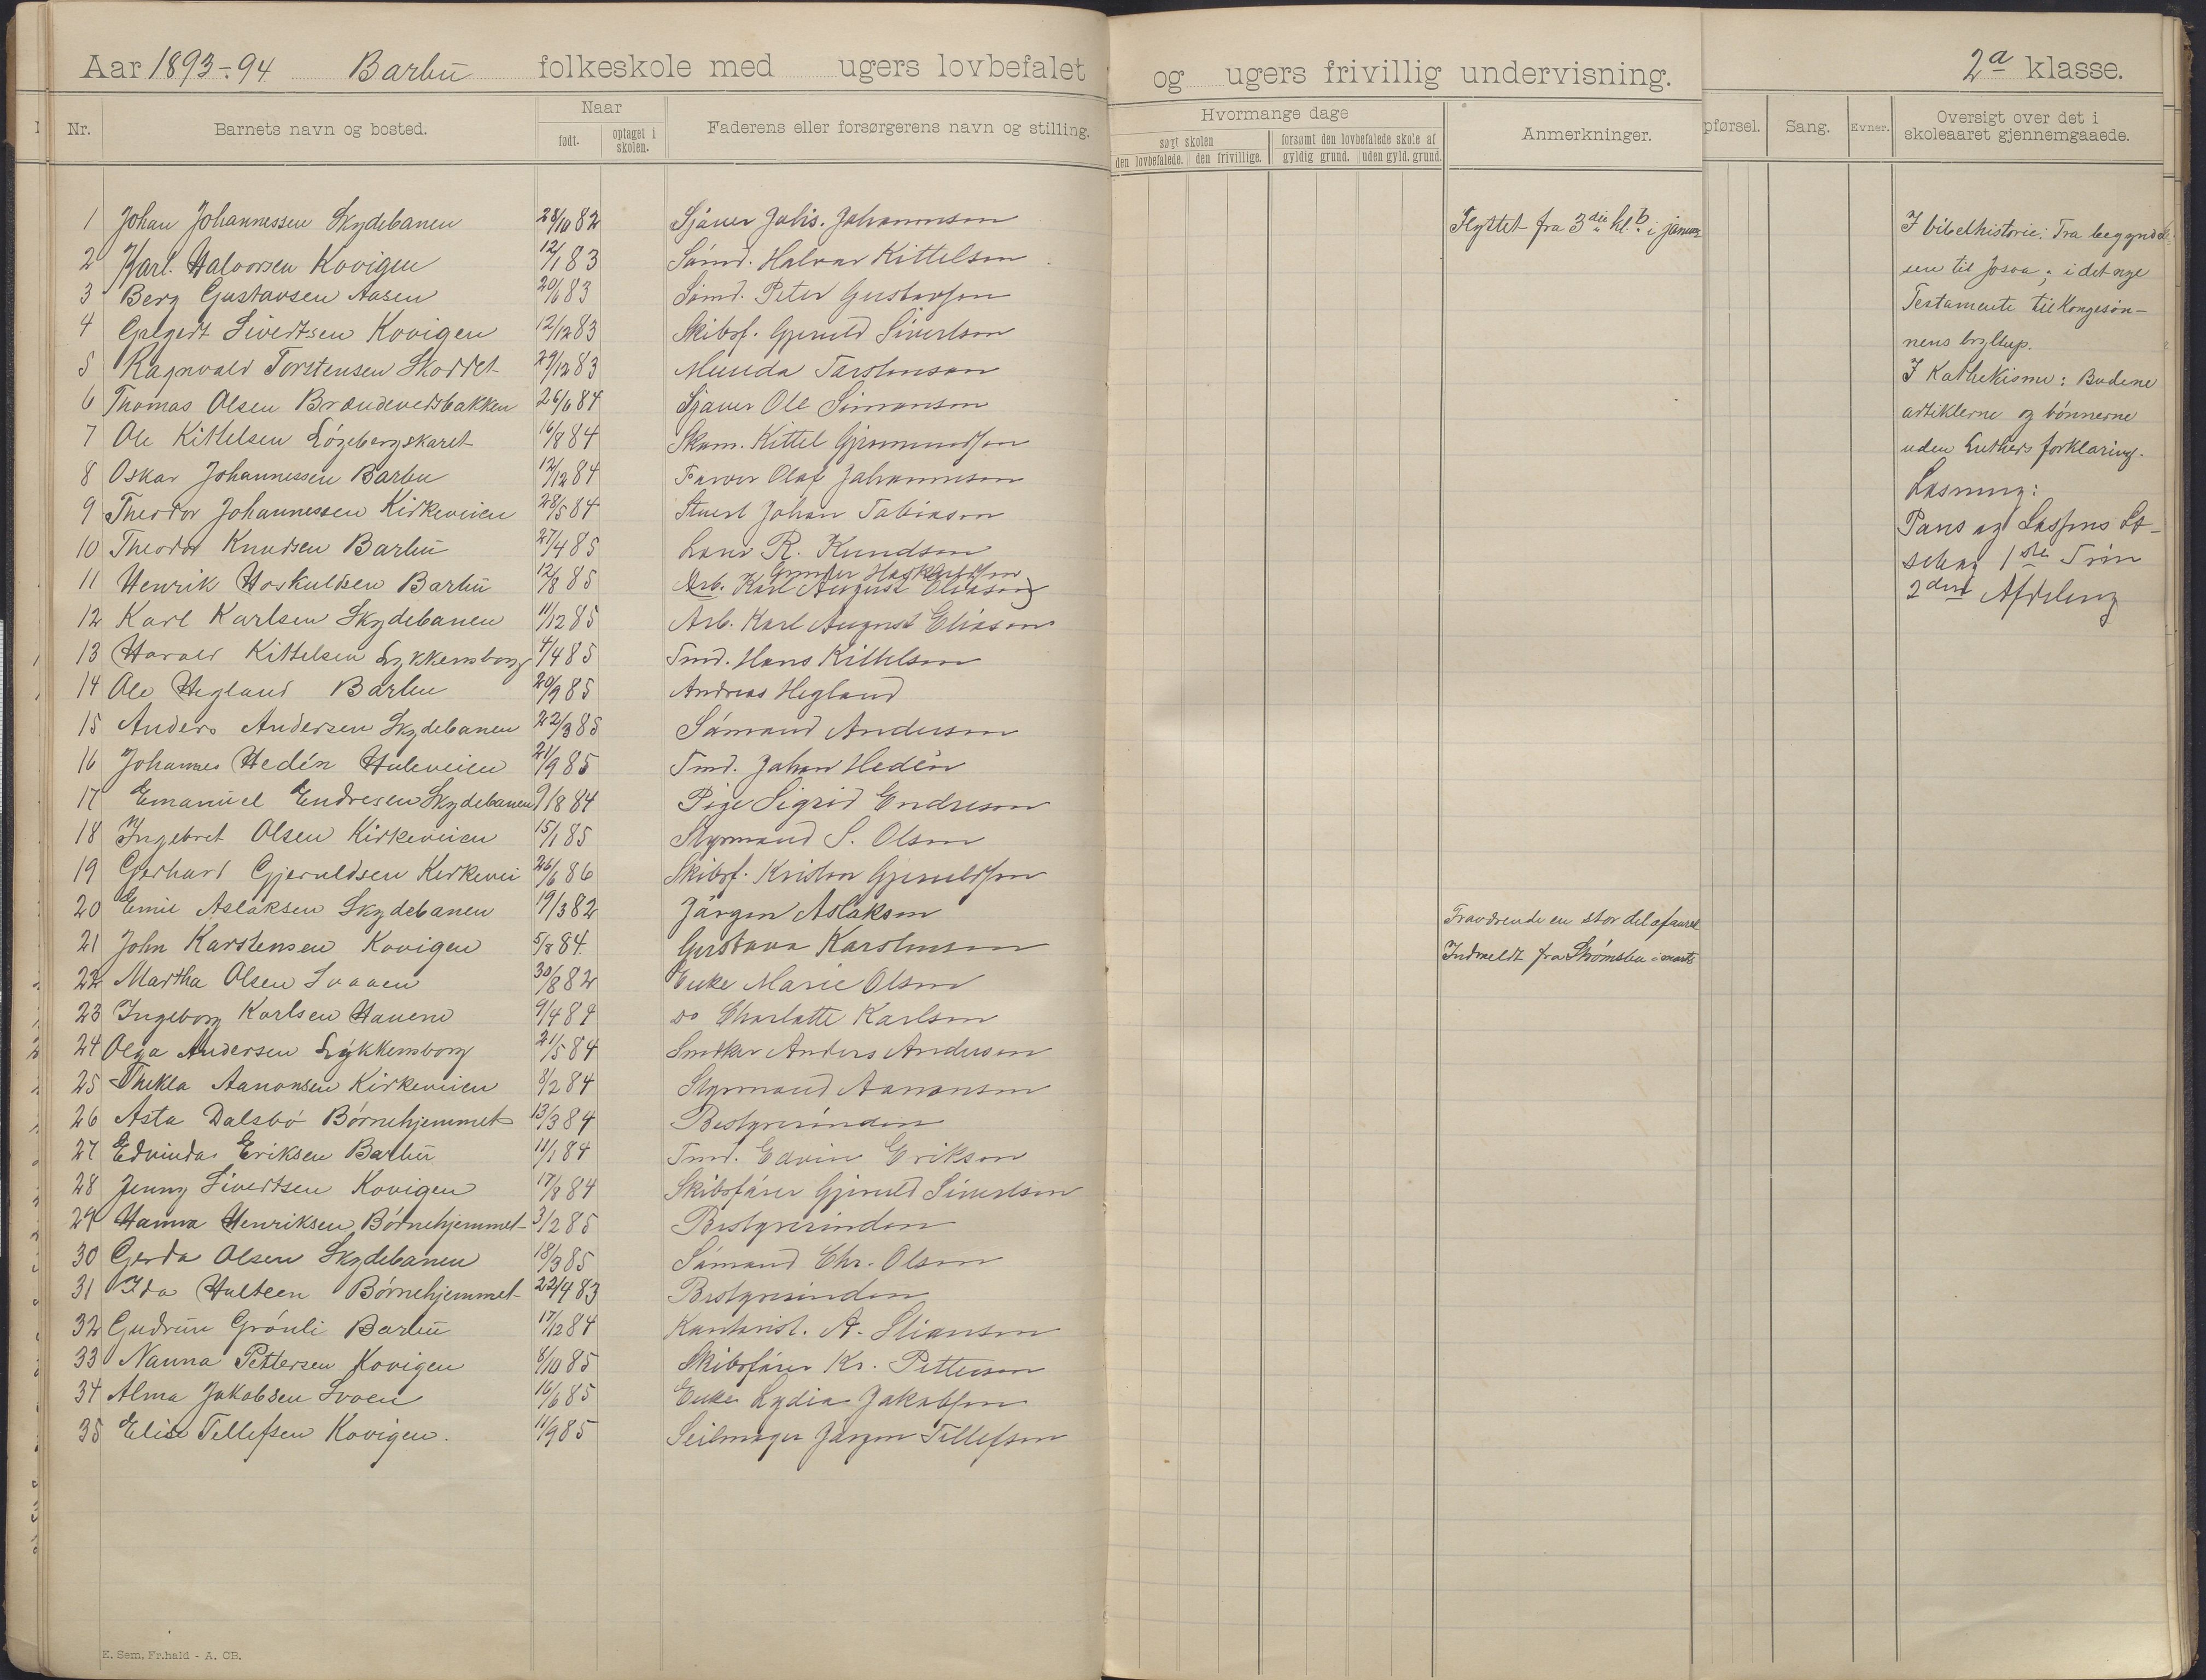 Aar 1893-94 Barbu folkeskole med ugers lovbefalet og ugers frivillig undervisning. 2a klasse.
Nr. Barnets navn og bosted. Naar født. optaget i skolen. Faderens eller forsørgerens navn og stilling. Hvormange dage søgt skolen den lovbefalede. den frivillige. forsømt den lovbefalede skole af gyldig grund. uden gyld. grund. Anmerkninger. pførsel. Sang. Evner. Oversigt over det i skoleaaret gjennemgaaede.
1 Johan Johannessen Skydebanen 28/10 82 Sjauer Johs. Johannessen Flyttet fra 3die kl. b i januar
2 Karl Halvorsen Kovigen 12/1 83 Sømd. Halvor Kittelsen
3 Berg Gustavsen Aasen 20/6 83 Sømd. Peter Gustavsen
4 Sivertsen Kovigen 12/12 83 Skibsf. Gjeruld Sivertsen
5 Ragnvald Torstensen Skoddet 29/12 83 Torstensen
6 Thomas Olsen Brændevedsbakken 26/6 84 Sjauer Ole Simonsen
7 Ole Kittelsen Løgebergskaret 16/8 84 Skom. Kittel Gjermundsen
8 Oskar Johannessen Barbu 12/12 84 Farver Olaf Johannessen
9 Theodor Johannessen Kirkeveien 28/5 84 Stuert Johan Tobiasen
10 Theodor Knudsen Barbu 27/4 85 Lods R. Knudsen
11 Henrik Hoskuldsen Barbu 12/8 85 Gunder Hoskuldsen
Arb. Karl August Eliasen
12 Karl Karlsen Skydebanen 11/12 85 Arb. Karl August Eliasen
13 Harald Kittelsen Lykkensborg 4/4 85 Tmd. Hans Kittelsen
14 Ole Hegland Barbu 20/9 85 Andreas Hegland
15 Anders Andersen Skydebanen 22/3 85 Sømand Andersen
16 Johannes Hedén Huleveien 21/9 85 Tmd. Johan Hedén
17 Emanuel Endresen Skydebanen 9/8 84 Pige Sigrid Endresen
18 Ingebret Olsen Kirkeveien 15/1 85 Styrmand S. Olsen
19 Gerhard Gjeruldsen Kirkevei 26/6 86 Skibsf. Kristen Gjeruldsen
20 Emil Aslaksen Skydebanen 19/3 82 Jørgen Aslaksen Fraværende en stor del af aaret
21 John Karstensen Kovigen 5/8 84 Gustava Karstensen Indmeldt fra Strømsbu i marts
22 Martha Olsen Svaaen 30/8 82 Enke Marie Olsen
23 Ingeborg Karlsen Havene 9/4 84 do Charlotte Karlsen
24 Olga Andersen Lykkensborg 21/5 84 Snedker Anders Andersen
25 Thekla Aanonsen Kirkeveien 8/2 84 Styrmand Aanonsen
26 Asta Dalsbø Børnehjemmet 13/3 84 Bestyrerinden
27 Edvinda Eriksen Barbu 11/1 84 Tmd. Edvin Eriksen
28 Jenny Sivertsen Kovigen 17/8 84 Skibsfører Gjeruld Sivertsen
29 Hanna Henriksen Børnehjemmet 3/2 85 Bestyrerinden
30 Gerda Olsen Skydebanen 18/3 85 Sømand Chr. Olsen
31 Ida Hulteen Børnehjemmet 22/4 83 Bestyrerinden
32 Gudrun Grønli Barbu 17/12 84 Kontorist. A. Stiansen
33 Nanna Pettersen Kovigen 8/10 85 Skibsfører Kr. Pettersen
34 Alma Jakobsen Svoen 16/6 85 Enke Lydia Jakobsen
35 Elise Tellefsen Kovigen. 11/9 85 Seilmager Jørgen Tellefsen
I bibelhistorie: Fra begyndel-
sen til Josva; i det nye
Testamente til Kongesøn-
nens bryllup.
I Kathekisme: Budene
artiklerne og bønnerne
uden Luthers forklaring.
Læsning:
Pauss og Lassens Læ-
sebog 1ste Trin
2den Afdeling
E. Sem, Fr.hald - A. CB.